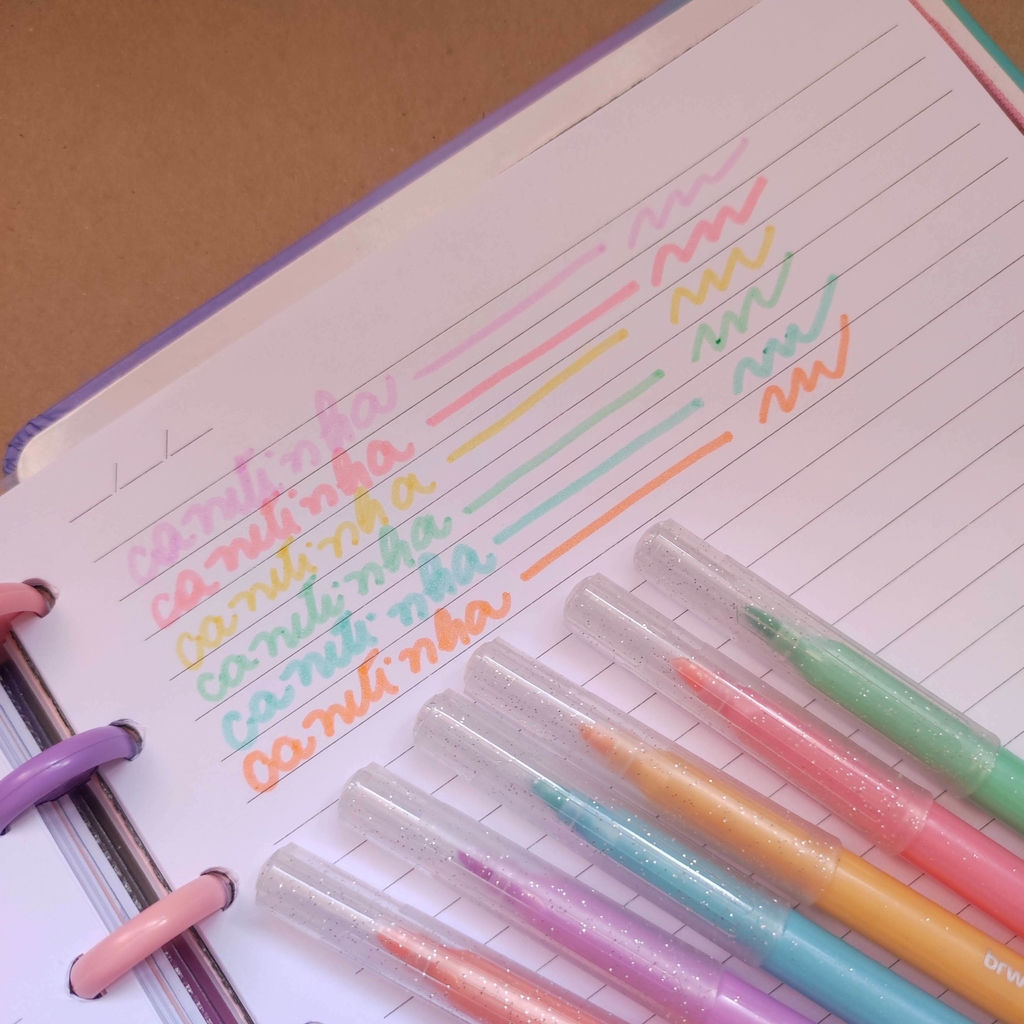 canetinha
canetinha
canetinha
canetinha
canetinha
canetinha
brw